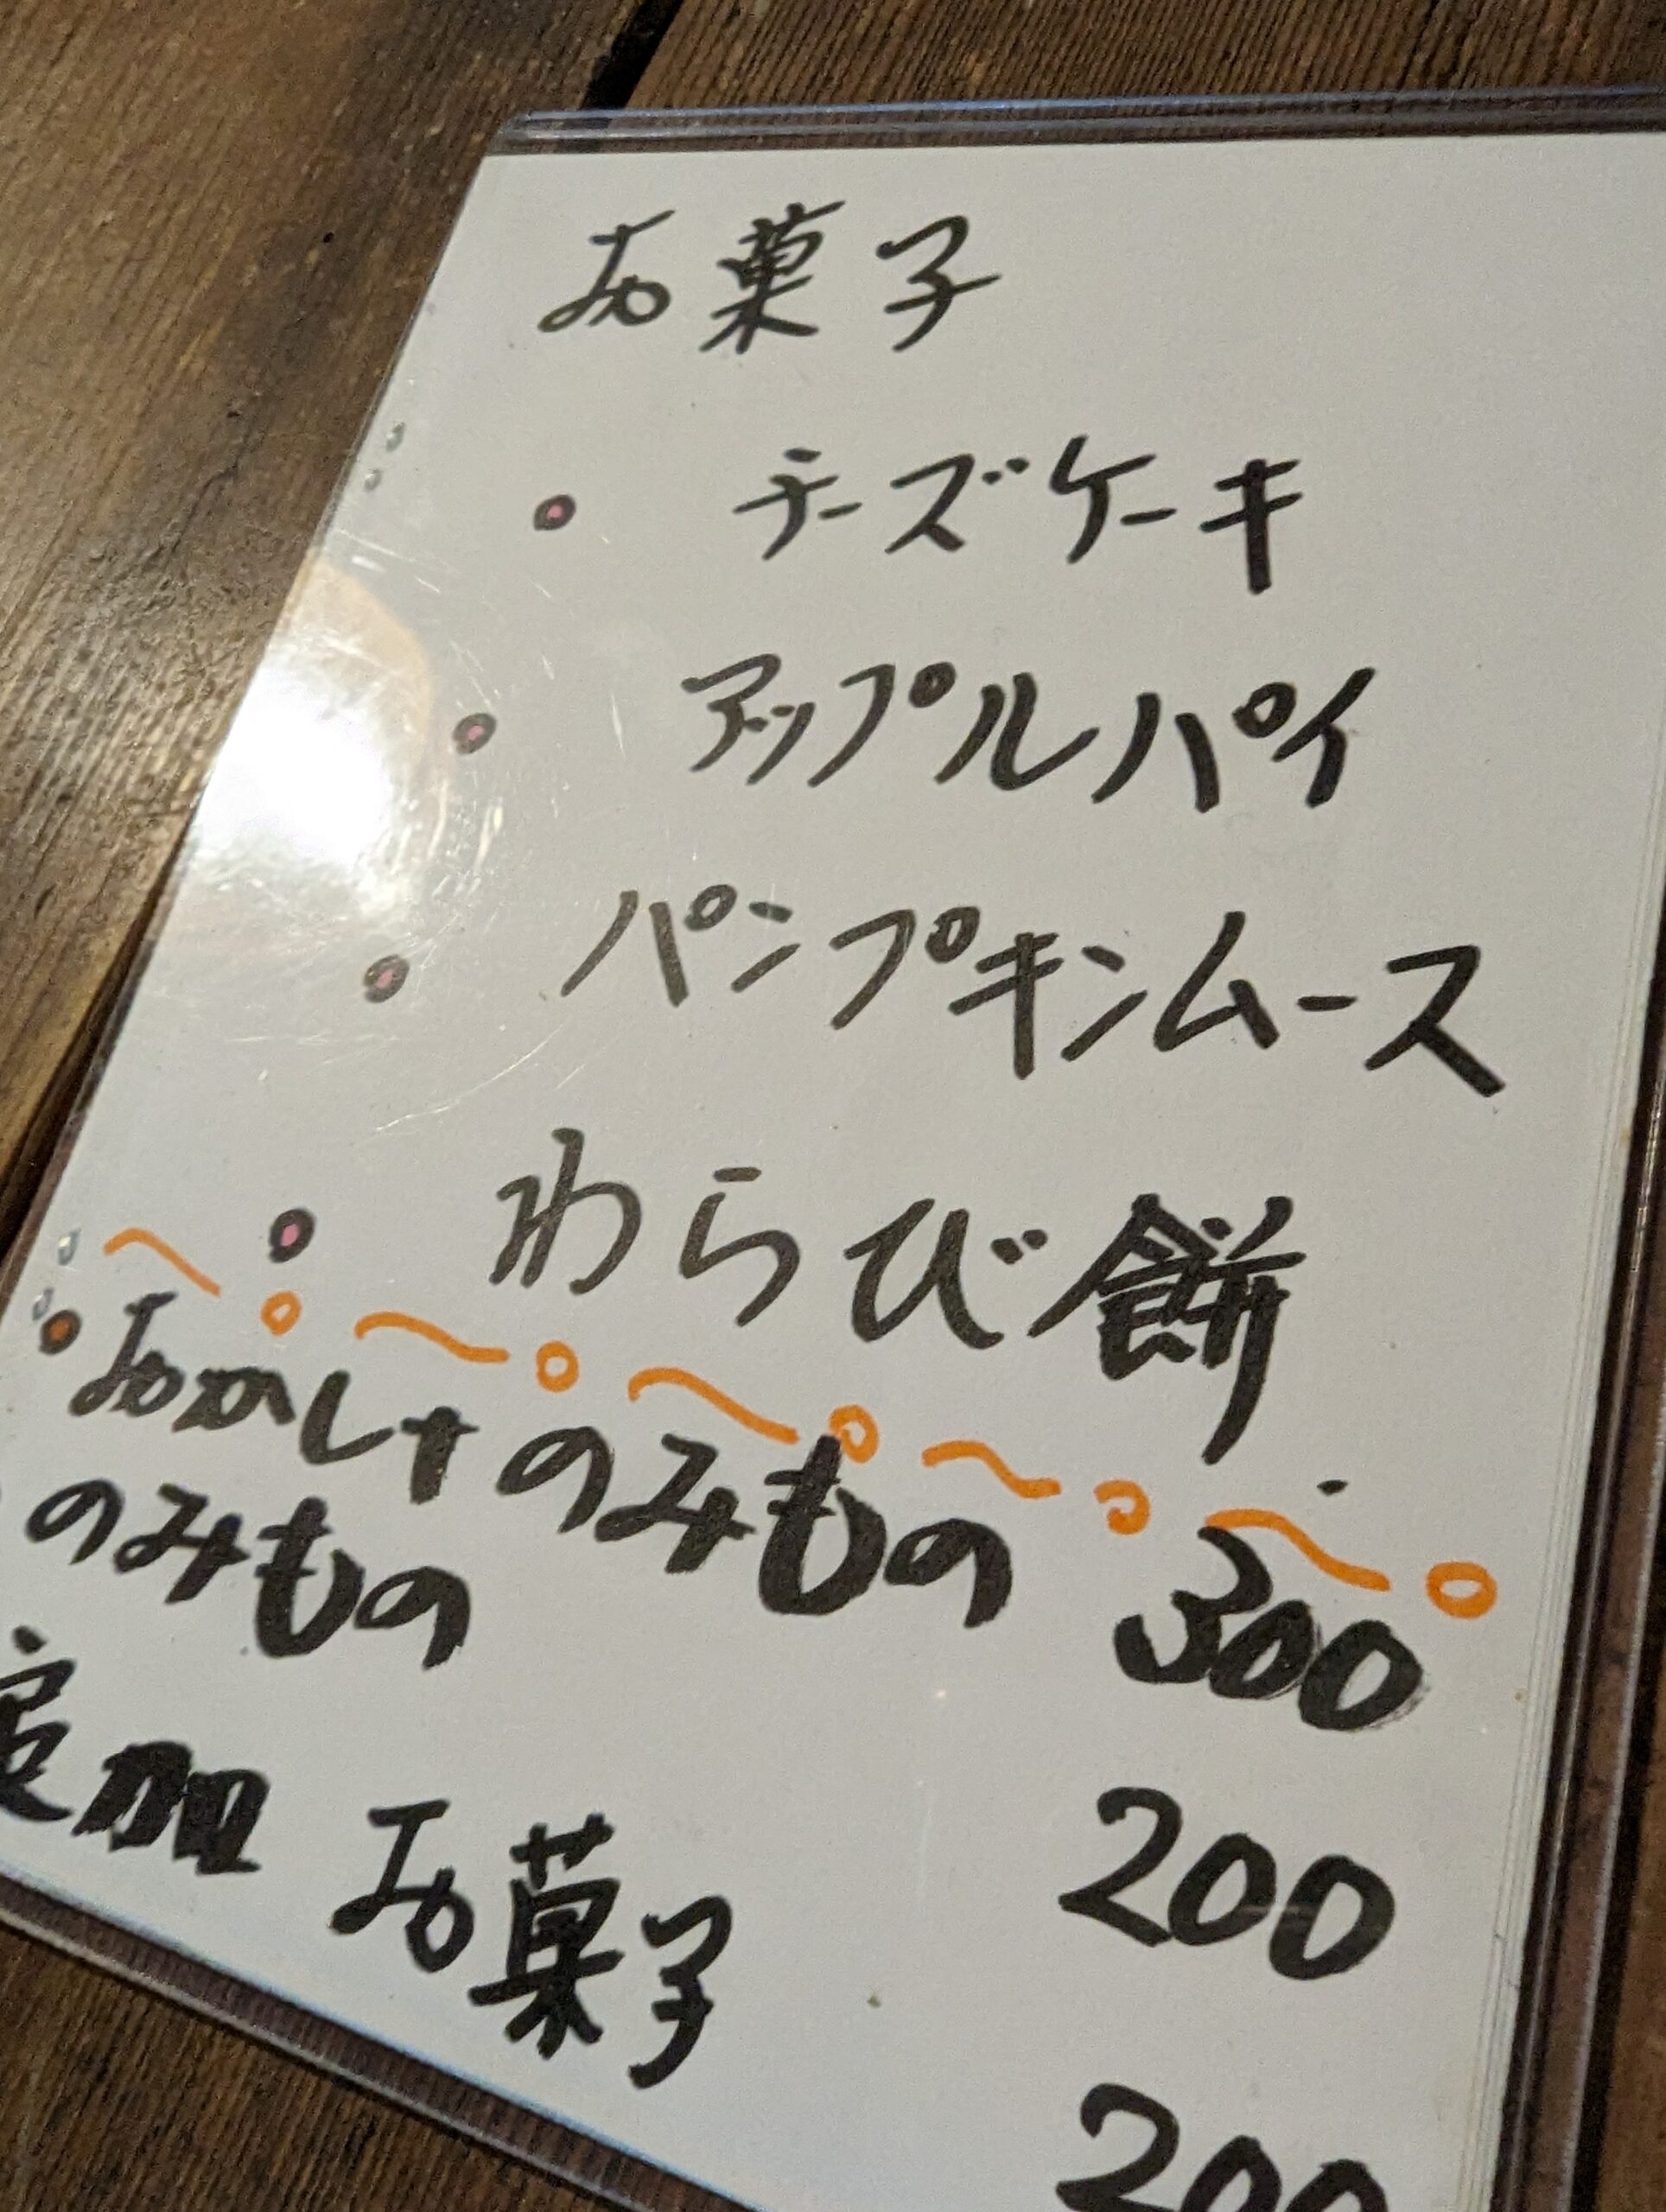 お菓子
・ チーズケーキ
・ アップルパイ
・ パンプキンムース
・ わらび餅
・おかし+のみもの 300
のみもの 200
追加 お菓子 200